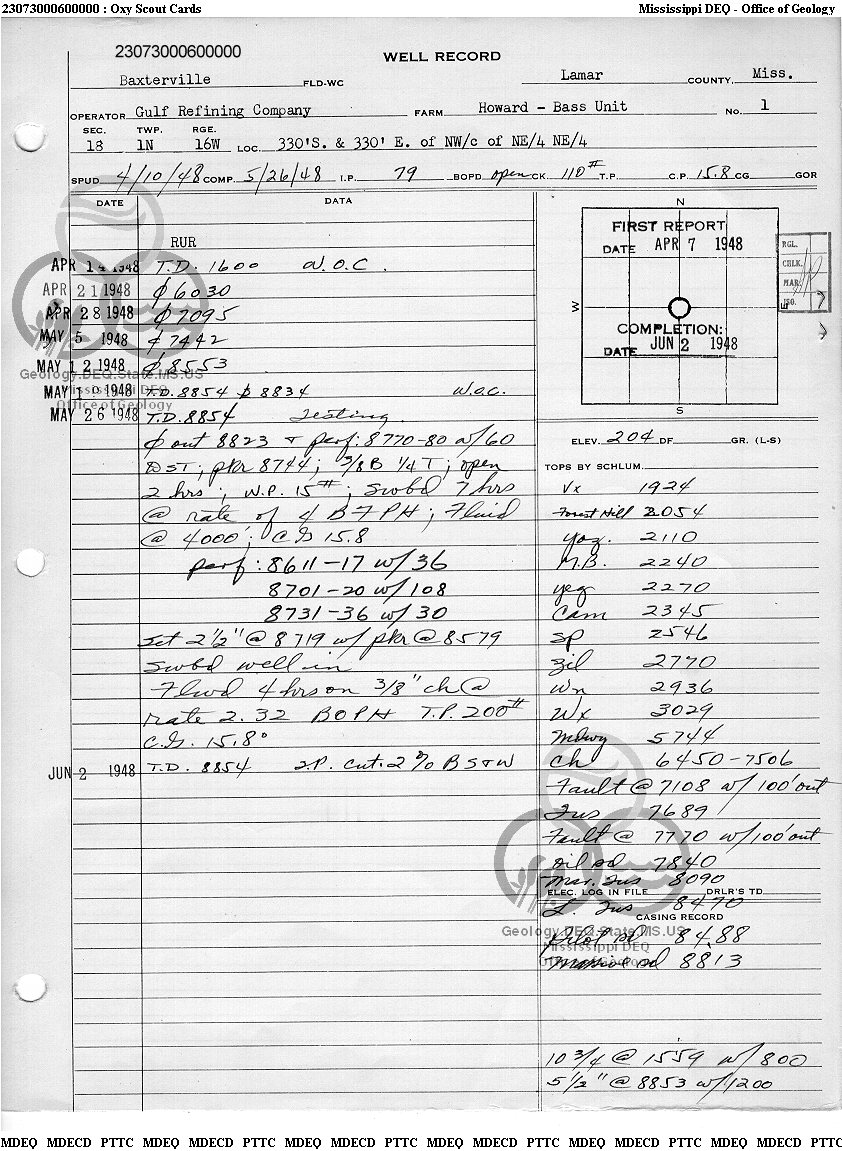 23073000600000 : Oxy Scout Cards Mississippi DEQ - Office of Geology
23073000600000
WELL RECORD
Baxterville FLD-WC Lamar COUNTY, Miss.
OPERATOR Gulf Refining Company FARM Howard - Bass Unit No. 1
SEC. TWP. RGE.
18 1N 16W LOC. 330'S. & 330' E. of NW/c of NE/4 NE/4
SPUD 4/10/48 COMP. 5/26/48 I.P. 79 BOPD open CK. 110# T.P. C.P. 15.8 CG GOR
DATE DATA
RUR
APR 14 1948 T.D. 1600 W.O.C.
APR 21 1948 ₵ 6030
APR 28 1948 ₵ 7095
MAY 5 1948 ₵ 7442
MAY 12 1948 ₵ 8553
MAY 1 1948 T.D. 8854 ₵ 8834 W.O.C.
MAY 26 1948 T.D. 8854 Testing
₵ out 8823 & perf: 8770-80 w/60
DST; pkr 8744; 3/8 B 1/4 T; open
2 hrs; W.P. 15#; swbd 7 hrs
@ rate of 4 BFPH; Fluid
@ 4000'; CG 15.8
perf: 8611-17 w/36
8701-20 w/108
8731-36 w/30
Set 2 1/2" @ 8719 w/ pkr @ 8579
Swbd well in
Flwd 4 hrs on 3/8" ch @
rate 2.32 BOPH T.P. 200#
C.G. 15.8°
JUN 2 1948 T.D. 8854 I.P. cut. 2% BS&W
N
W
E
S
FIRST REPORT
DATE APR 7 1948
COMPLETION:
DATE JUN 2 1948
RGL.
CHLK.
MAR.
ISO.
ELEV. 204 DF GR. (L-S)
TOPS BY SCHLUM.
Vx 1924
Forest Hill 2054
Yaz. 2110
M.B. 2240
Yeg 2270
Cam 2345
SP 2546
Zil 2770
Wn 2936
Wx 3029
Mdwy 5744
Ch 6450-7506
Fault @ 7108 w/ 100' out
Tus 7689
Fault @ 7770 w/100' out
Oil sd 7840
Mar. Tus 8090
ELEC. LOG IN FILE DRLR'S TD
L. Tus 8470
CASING RECORD
Pilot sd 8488
Massive sd 8813
10 3/4 @ 1559 w/ 800
5 1/2" @ 8853 w/1200
Geology.DEQ.State.MS.US
Mississippi DEQ
Office of Geology
Geology.DEQ.State.MS.US
Mississippi DEQ
Office of Geology
MDEQ MDECD PTTC MDEQ MDECD PTTC MDEQ MDECD PTTC MDEQ MDECD PTTC MDEQ MDECD PTTC MDEQ MDECD PTTC